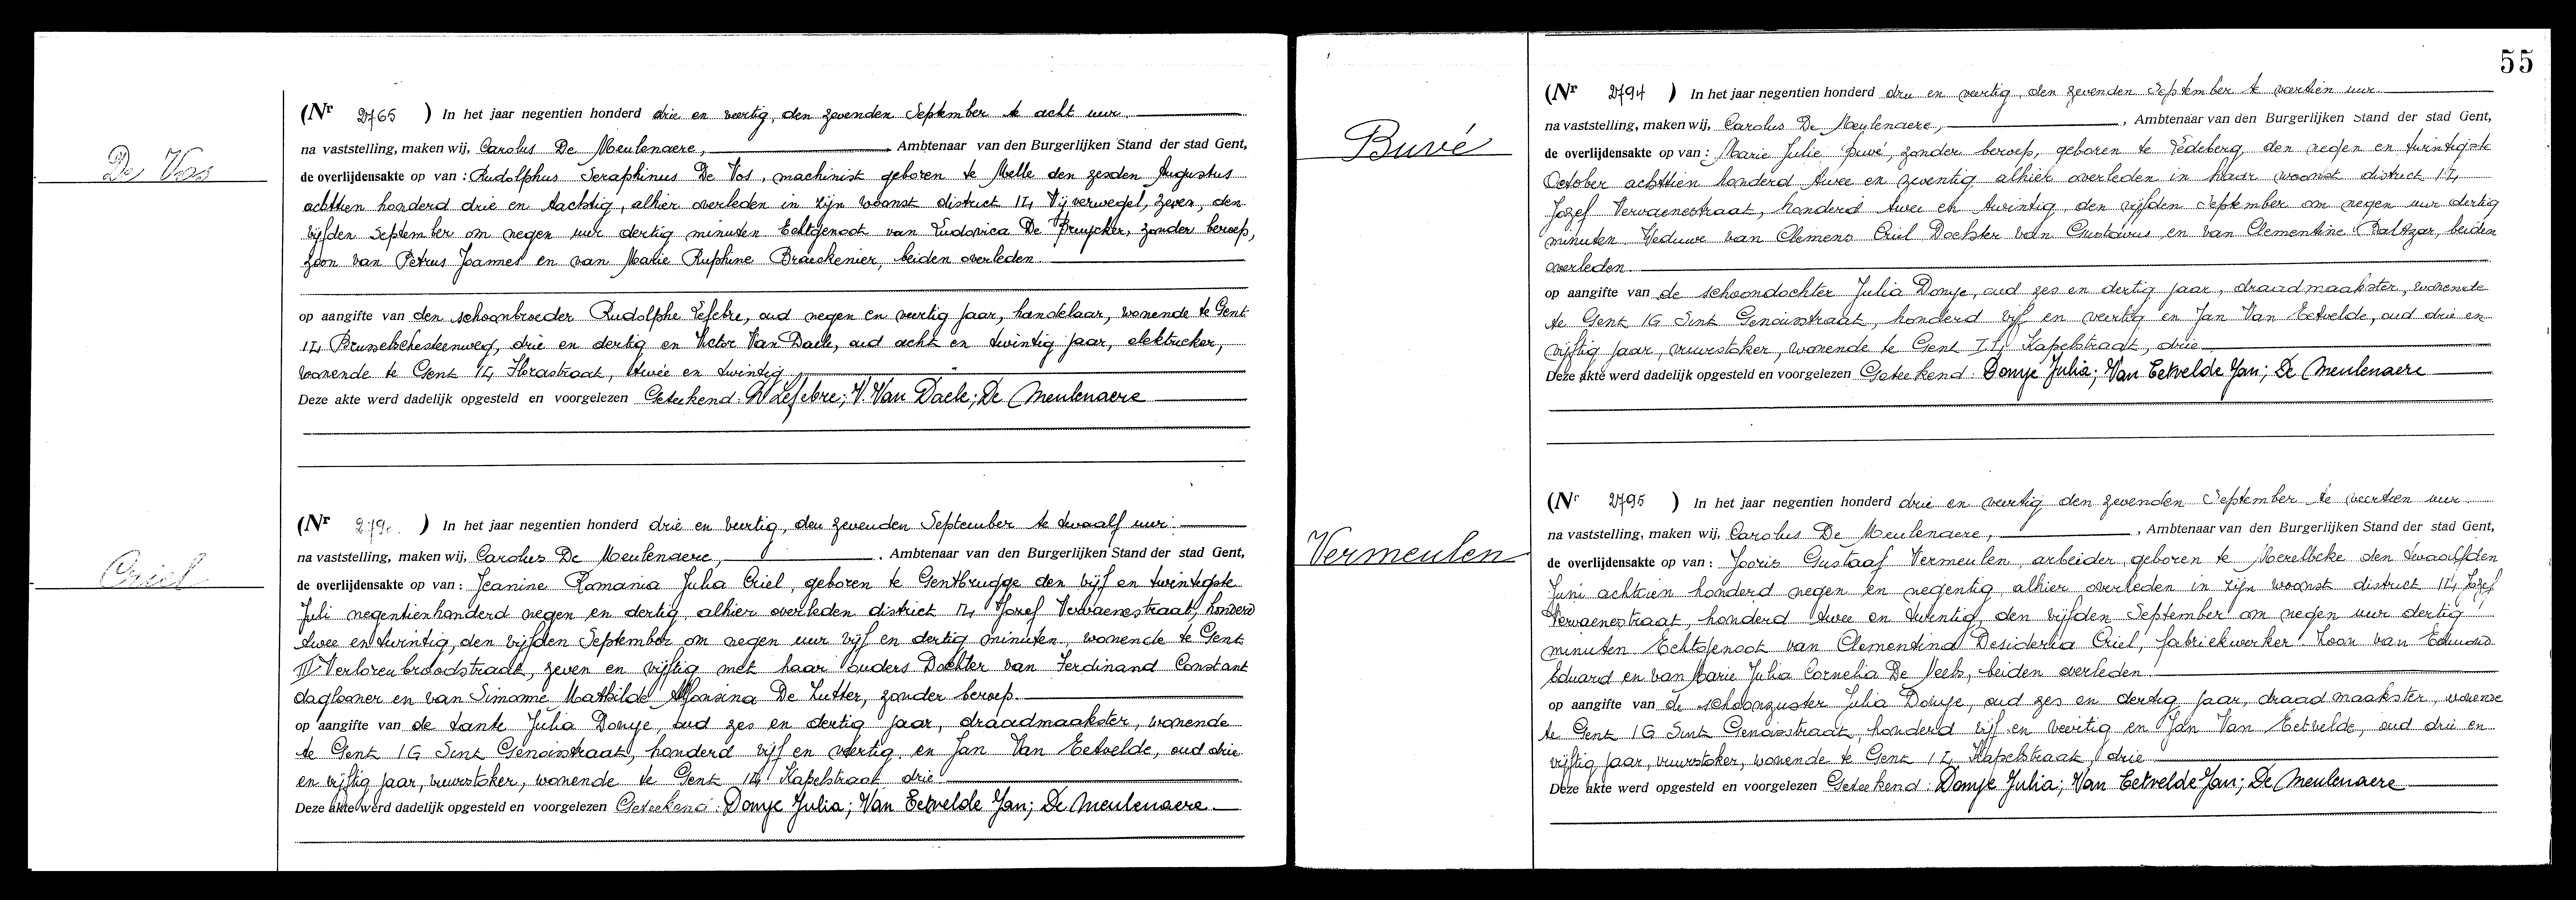 De Vos
(Nr 2765 ) In het jaar negentien honderd drie en veertig, den zevenden September te acht uur.
na vaststelling, maken wij, Carolus De Meulenaere, Ambtenaar van den Burgerlijken Stand der stad Gent,
de overlijdensakte op van : Rudolphus Seraphinus De Vos, machinist geboren te Melle den zesden Augustus
achttien honderd drie en tachtig, alhier overleden in zijn woonst district 14 Vijverwegel, zeven, den
vijfden September om negen uur dertig minuten Echtgenoot van Ludovica De Bruycker, zonder beroep,
zoon van Petrus Joannes en van Marie Ruphine Braeckenier, beiden overleden
op aangifte van den schoonbroeder Rudolphe Lefebre, oud negen en veertig jaar, handelaar, wonende te Gent
14 Brusselschesteenweg, drie en dertig en Victor Van Daele, oud acht en twintig jaar, elektrieker,
wonende te Gent 14 Florastraat, twee en twintig
Deze akte werd dadelijk opgesteld en voorgelezen Geteekend: R Lefebre; V. Van Daele; De Meulenaere
Criel
(Nr 279 ) In het jaar negentien honderd drie en veertig, den zevenden September te twaalf uur.
na vaststelling, maken wij, Carolus De Meulenaere, Ambtenaar van den Burgerlijken Stand der stad Gent,
de overlijdensakte op van : Jeanine Romania Julia Criel, geboren te Gentbrugge den vijf en twintigste
Juli negentienhonderd negen en dertig, alhier overleden district 14 Jozef Vervaenestraat, honderd
twee en twintig, den vijfden September om negen uur vijf en dertig minuten, wonende te Gent
Verlorenbroodstraat, zeven en vijftig met haar ouders Dochter van Ferdinand Constant
daglooner en van Simonne Mathilde Alfonsina De Zutter, zonder beroep.
op aangifte van de tante Julia Donye, oud zes en dertig jaar, draadmaakster, wonende
te Gent 1G Sint Genoisstraat, honderd vijf en veertig en Jan Van Eetvelde, oud drie
en vijftig jaar, vuurstoker, wonende te Gent 14 Kapelstraat drie
Deze akte werd dadelijk opgesteld en voorgelezen Geteekend: Donye Julia; Van Eetvelde Jan; De Meulenaere
55
Buvé
(Nr 2794 ) In het jaar negentien honderd drie en veertig, den zevenden September te veertien uur
na vaststelling, maken wij, Carolus De Meulenaere, Ambtenaar van den Burgerlijken Stand der stad Gent,
de overlijdensakte op van : Marie Julie Buvé, zonder beroep, geboren te Ledeberg, den negen en twintigste
October achttien honderd twee en zeventig alhier overleden in haar woonst district 14
Jozef Vervaenestraat, honderd twee en twintig, den vijfden September om negen uur dertig
minuten Weduwe van Clemens Criel Dochter van Gustavus en van Clementine Baltzar, beiden
overleden.
op aangifte van de schoondochter Julia Donye, oud zes en dertig jaar, draadmaakster, wonende
te Gent 1G Sint Genoisstraat, honderd vijf en veertig en Jan Van Eetvelde, oud drie en
vijftig jaar, vuurstoker, wonende te Gent 14 Kapelstraat, drie
Deze akte werd dadelijk opgesteld en voorgelezen Geteekend: Donye Julia; Van Eetvelde Jan; De Meulenaere
Vermeulen
(Nr 2795 ) In het jaar negentien honderd drie en veertig den zevenden September te veertien uur
na vaststelling, maken wij, Carolus De Meulenaere, Ambtenaar van den Burgerlijken Stand der stad Gent,
de overlijdensakte op van : Joris Gustaaf Vermeulen, arbeider, geboren te Merelbeke den twaalfden
Juni achttien honderd negen en negentig alhier overleden in zijn woonst district 14 Jozef
Vervaenestraat, honderd twee en twintig, den vijfden September om negen uur dertig
minuten Echtgenoot van Clementina Desideria Criel, fabriekwerker. Zoon van Eduard
Eduard en van Marie Julia Cornelia De Neels, beiden overleden.
op aangifte van de schoonzuster Julia Donye, oud zes en dertig jaar, draadmaakster, wonende
te Gent 1G Sint Genoisstraat, honderd vijf en veertig en Jan Van Eetvelde, oud drie en
vijftig jaar, vuurstoker, wonende te Gent 14 Kapelstraat, drie
Deze akte werd dadelijk opgesteld en voorgelezen Geteekend: Donye Julia; Van Eetvelde Jan; De Meulenaere